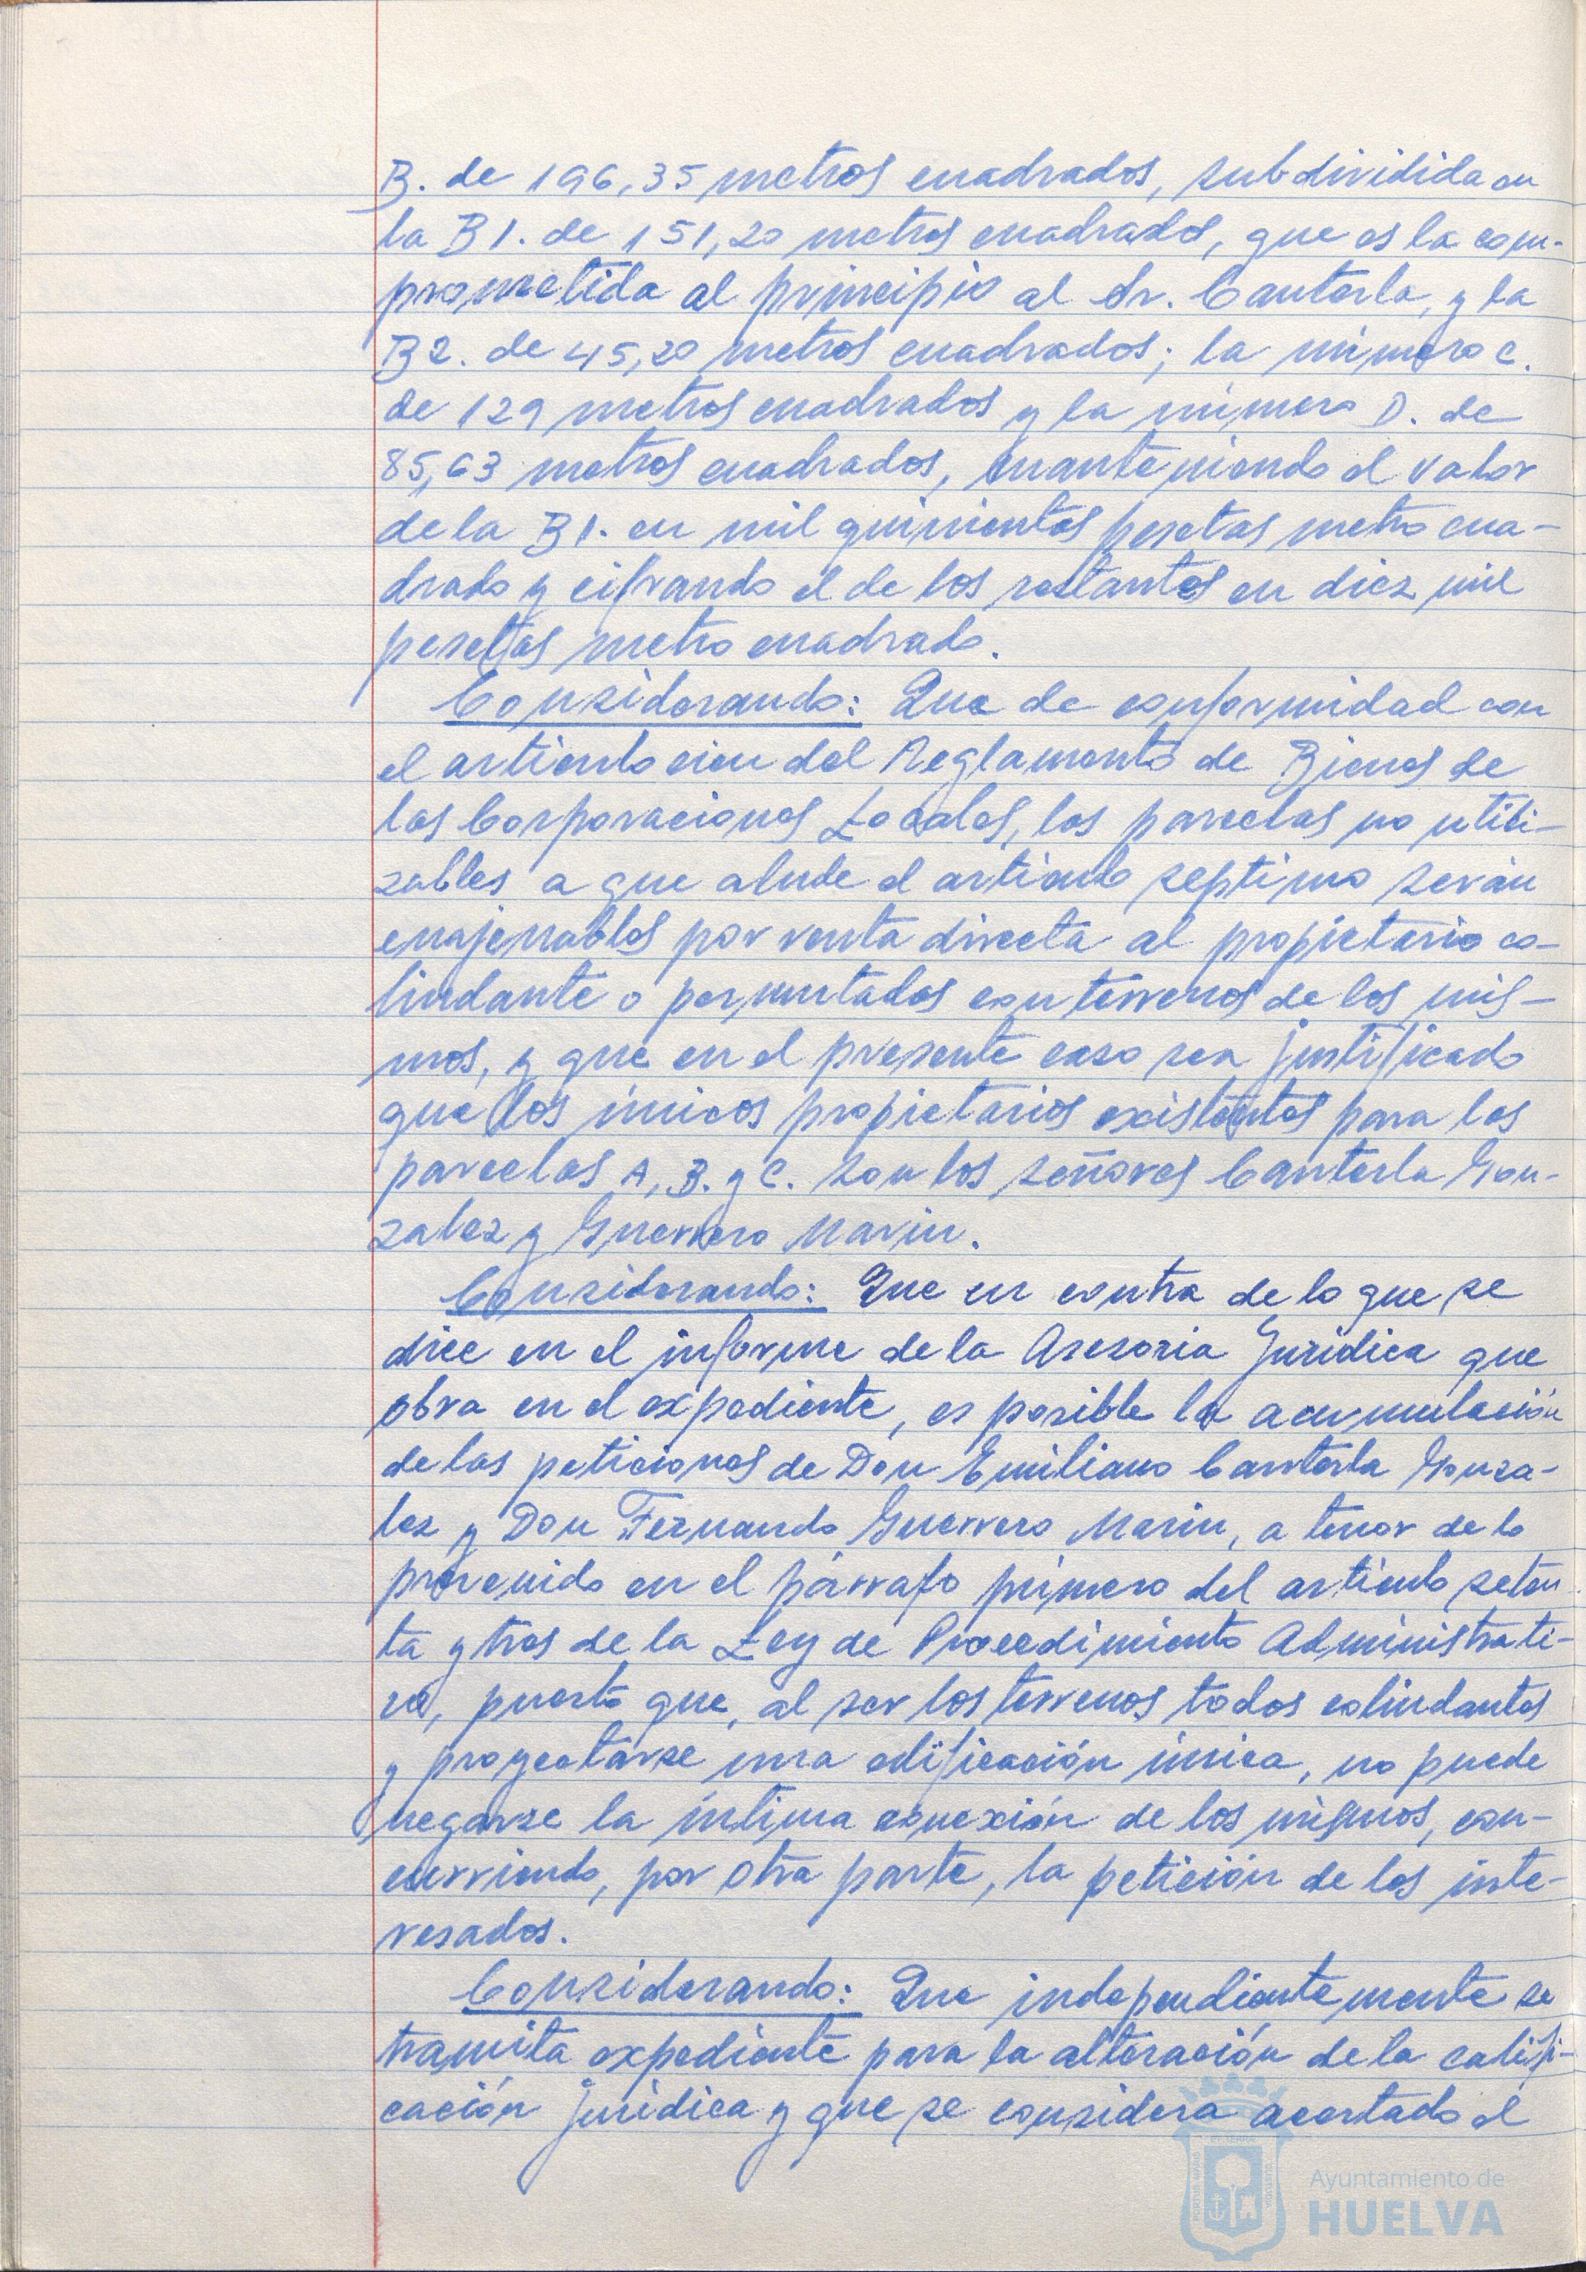 B. de 196,35 metros cuadrados, subdividida en
la B1. de 151,20 metros cuadrados, que es la com-
prometida al principio al Sr. Cantorla, y la
B2. de 45,20 metros cuadrados; la número C.
de 129 metros cuadrados y la número D. de
85,63 metros cuadrados, manteniendo el valor
de la B1. en mil quinientas pesetas metro cua-
drado y cifrando el de los restantes en diez mil
pesetas metro cuadrado.
Considerando: Que de conformidad con
el articulo cien del Reglamento de Bienes de
las Corporaciones Locales, las parcelas no utili-
zables a que alude el articulo septimo serán
enajenables por venta directa al propietario co-
lindante o permutados con terrenos de los mis-
mos, y que en el presente caso sea justificado
que los únicos propietarios existentes para las
parcelas A, B. y C. son los señores Cantorla Gon-
zalez y Guerrero Marin.
Considerando: Que en contra de lo que se
dice en el informe de la Asesoria Juridica que
obra en el expediente, es posible la acumulación
de las peticiones de Don Emiliano Cantorla Gonza-
lez y Don Fernando Guerrero Marin, a tenor de lo
prevenido en el párrafo primero del articulo seten-
ta y tres de la Ley de Procedimiento Administrati-
vo, puesto que, al ser los terrenos todos colindantes
y proyectarse una edificación única, no puede
negarse la íntima conexión de los mismos, con-
curriendo, por otra parte, la petición de los inte-
resados.
Considerando: Que independientemente se
tramita expediente para la alteración de la califi-
cación juridica y que se considera acertado el
Ayuntamiento de
HUELVA